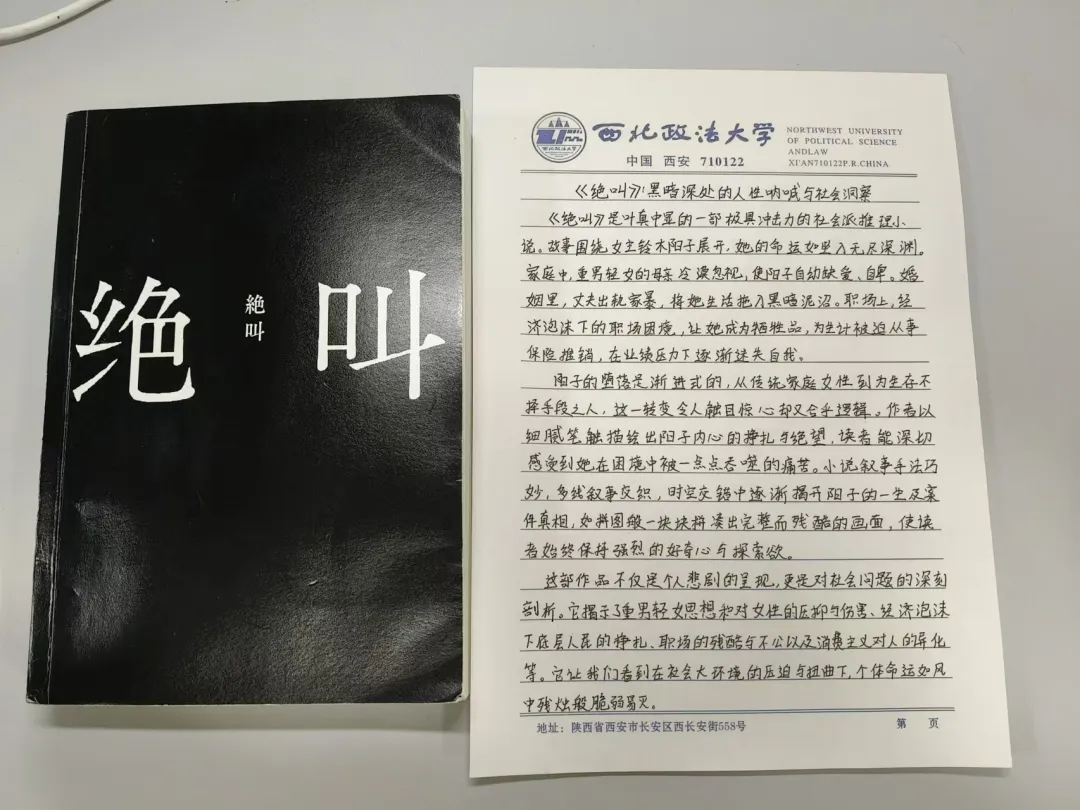 绝
絶叫
叫
西北政法大学
NORTHWEST UNIVERSITY
OF POLITICAL SCIENCE
ANDLAW
XI'AN710122P.R.CHINA
中国 西安 710122
《绝叫》：黑暗深处的人性呐喊与社会洞察
《绝叫》是叶真中显的一部极具冲击力的社会派推理小
说。故事围绕女主铃木阳子展开，她的命运如坠入无尽深渊。
家庭中，重男轻女的母亲冷漠忽视，使阳子自幼缺爱、自卑。婚
姻里，丈夫出轨家暴，将她生活拖入黑暗泥沼。职场上，经
济泡沫下的职场困境，让她成为牺牲品，为生计被迫从事
保险推销，在业绩压力下逐渐迷失自我。
阳子的堕落是渐进式的，从传统家庭女性到为生存不
择手段之人，这一转变令人触目惊心却又合乎逻辑。作者以
细腻笔触描绘出阳子内心的挣扎与绝望，读者能深切
感受到她在困境中被一点点吞噬的痛苦。小说叙事手法巧
妙，多线叙事交织，时空交错中逐渐揭开阳子的一生及案
件真相，如拼图般一块块拼凑出完整而残酷的画面，使读
者始终保持强烈的好奇心与探索欲。
这部作品不仅是个人悲剧的呈现，更是对社会问题的深刻
剖析。它揭示了重男轻女思想和对女性的压抑与伤害、经济泡沫
下底层人民的挣扎、职场的残酷与不公以及消费主义对人的异化
等。它让我们看到在社会大环境的压迫与扭曲下，个体命运如风
中残烛般脆弱易灭。
地址：陕西省西安市长安区西长安街558号
第 页